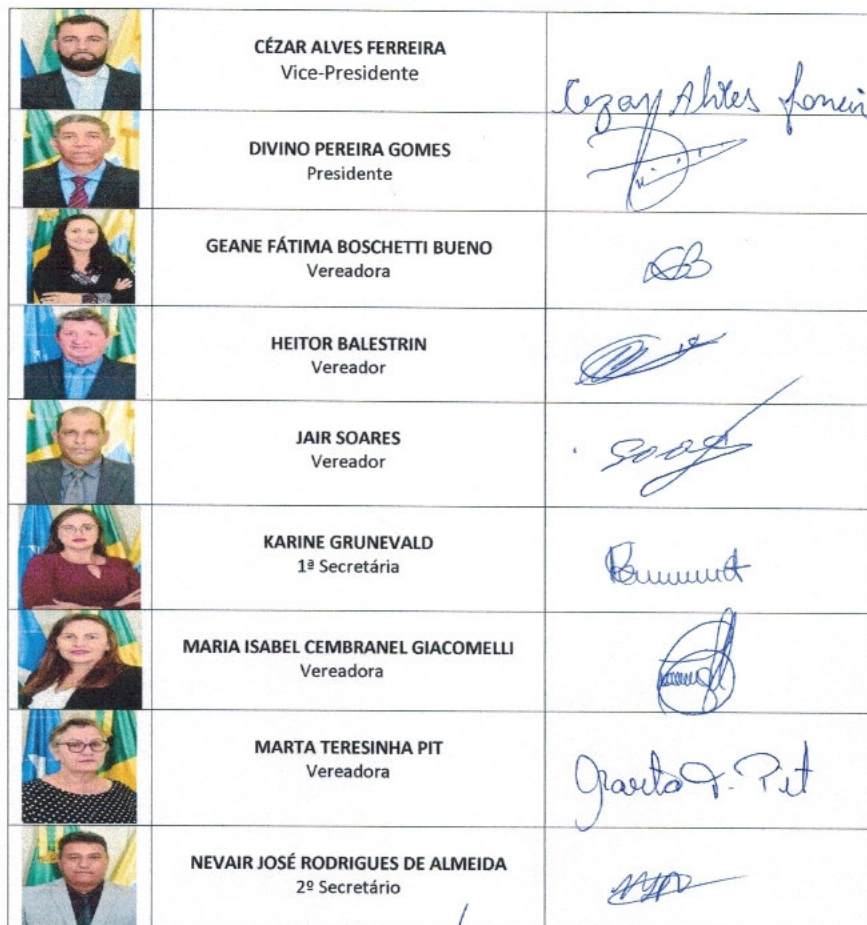 CÉZAR ALVES FERREIRA
Vice-Presidente
Cezar Alves
DIVINO PEREIRA GOMES
Presidente
GEANE FÁTIMA BOSCHETTI BUENO
Vereadora
HEITOR BALESTRIN
Vereador
JAIR SOARES
Vereador
KARINE GRUNEVALD
1ª Secretária
MARIA ISABEL CEMBRANEL GIACOMELLI
Vereadora
MARTA TERESINHA PIT
Vereadora
Marta T. Pit
NEVAIR JOSÉ RODRIGUES DE ALMEIDA
2º Secretário